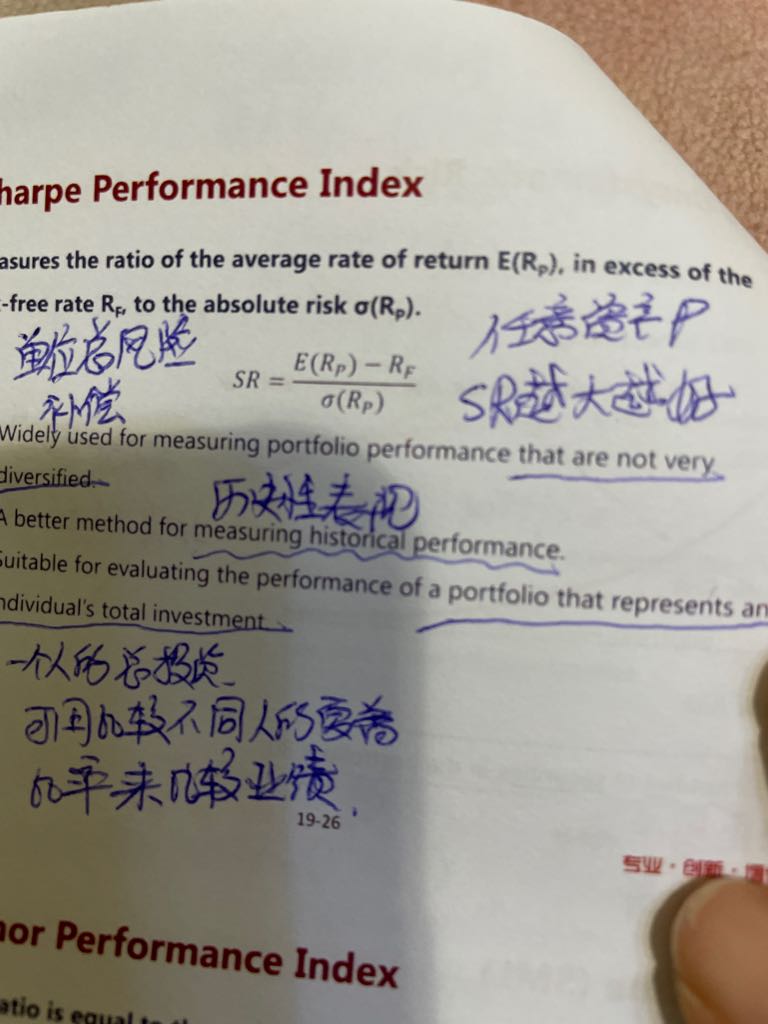 harpe Performance Index
asures the ratio of the average rate of return E(RP), in excess of the
-free rate RF, to the absolute risk σ(RP).
单位总风险
补偿
SR = (E(RP) − RF) / σ(RP)
任意资产P
SR越大越好
Widely used for measuring portfolio performance that are not very
diversified.
历史性表现
A better method for measuring historical performance.
Suitable for evaluating the performance of a portfolio that represents an
ndividual's total investment
一个人的总投资
可用比较不同人的
比率来比较业绩.
19-26
专业·创新·
nor Performance Index
atio is equal to